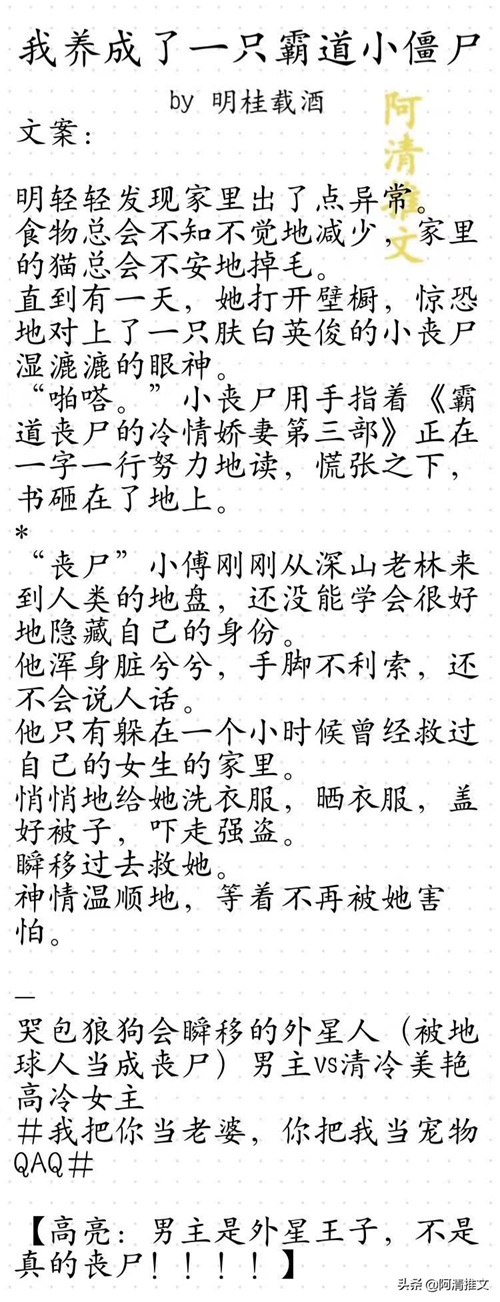 我养成了一只霸道小僵尸
by 明桂载酒
阿清推文
文案：
明轻轻发现家里出了点异常。
食物总会不知不觉地减少，家里
的猫总会不安地掉毛。
直到有一天，她打开壁橱，惊恐
地对上了一只肤白英俊的小丧尸
湿漉漉的眼神。
“啪嗒。”小丧尸用手指着《霸
道丧尸的冷情娇妻第三部》正在
一字一行努力地读，慌张之下，
书砸在了地上。
*
“丧尸”小傅刚刚从深山老林来
到人类的地盘，还没能学会很好
地隐藏自己的身份。
他浑身脏兮兮，手脚不利索，还
不会说人话。
他只有躲在一个小时候曾经救过
自己的女生的家里。
悄悄地给她洗衣服，晒衣服，盖
好被子，吓走强盗。
瞬移过去救她。
神情温顺地，等着不再被她害
怕。
—
哭包狼狗会瞬移的外星人（被地
球人当成丧尸）男主vs清冷美艳
高冷女主
#我把你当老婆，你把我当宠物
QAQ#
【高亮：男主是外星王子，不是
真的丧尸！！！！】
头条 @阿清推文